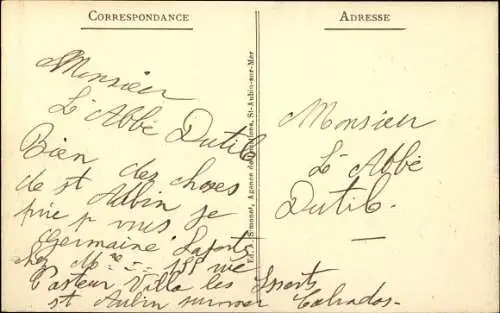 CORRESPONDANCE
Monsieur
L'Abbé Dutil
Bien des choses
de st Aubin
prie pr vous je
Germaine Laporte
chez Mme
Pasteur Villa les
st Aubin sur mer Calvados-
Simonet, Agence de St-Aubin-sur-Mer
ADRESSE
Monsieur
L'Abbé
Dutil.